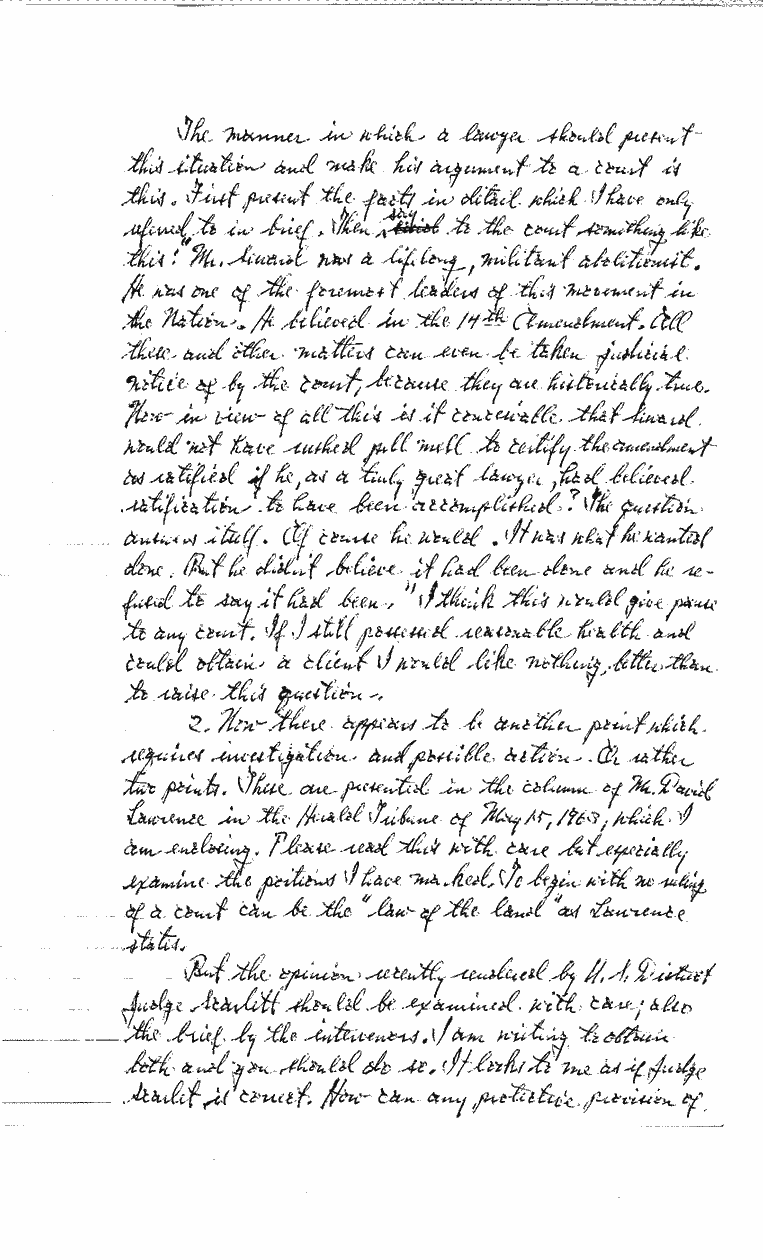 The manner in which a lawyer should present
this situation and make his argument to a court is
this. First present the facts in detail which I have only
referred to in brief. Then say to the court something like
this: "Mr. Seward was a lifelong, militant abolitionist.
He was one of the foremost leaders of this movement in
the Nation. He believed in the 14th Amendment. All
these and other matters can even be taken judicial
notice of by the court, because they are historically true.
Now in view of all this is it conceivable that Seward
would not have rushed pell mell to certify the amendment
as ratified if he, as a truly great lawyer, had believed
ratification to have been accomplished? The question
answers itself. Of course he would. It was what he wanted
done. But he didn't believe it had been done and he re-
fused to say it had been." I think this would give pause
to any court. If I still possessed reasonable health and
could obtain a client I would like nothing better than
to raise this question.
2. Now there appears to be another point which
requires investigation and possible action. Or rather
two points. These are presented in the column of Mr. David
Lawrence in the Herald Tribune of May 15, 1963, which I
am enclosing. Please read this with care but especially
examine the portions I have marked. To begin with no ruling
of a court can be the "law of the land" as Lawrence
states.
But the opinion recently rendered by U. S. District
Judge Scarlett should be examined with care; also
the brief by the interveners. I am writing to obtain
both and you should do so. It looks to me as if Judge
Scarlit is correct. How can any protective provision of